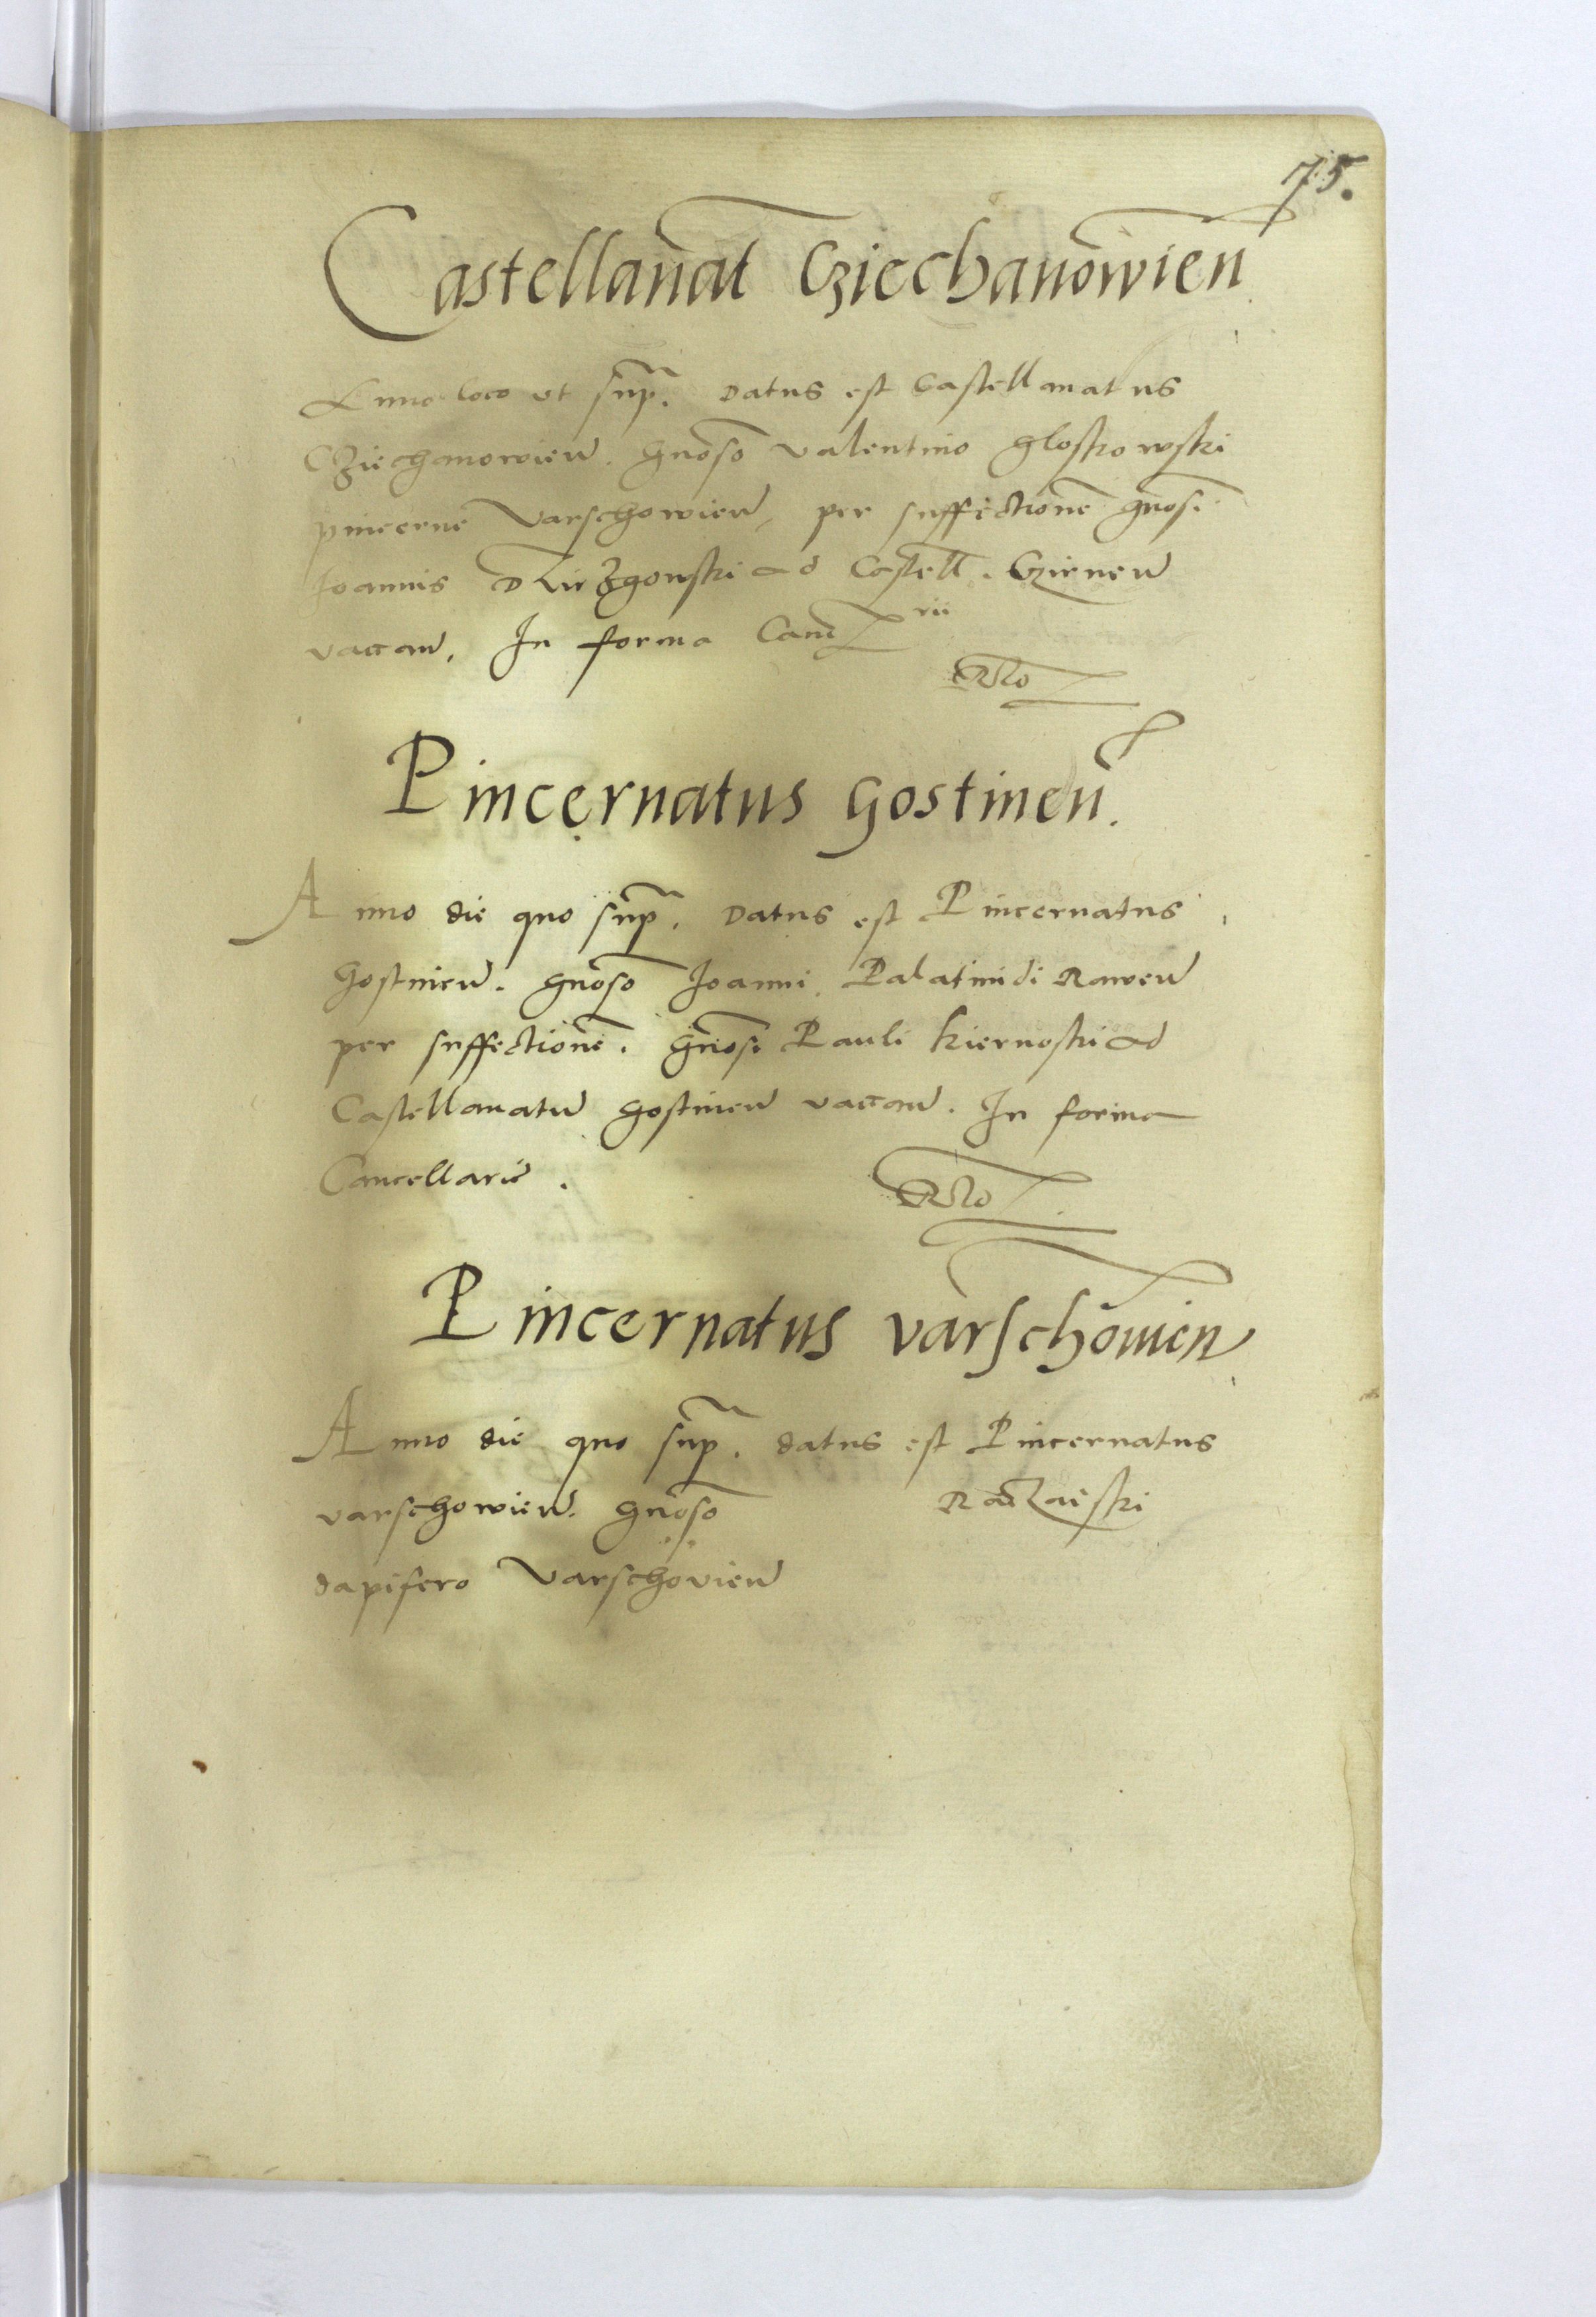 75.
Castellanat Cziechanowien
Anno loco ut supr. Datus est Castellanatus
Cziechanowien. gnoso Valentino Gloskowski
pincerne Varschowien, per suffectione gnosi
Joannis Dzierzgowski ad Castell. Czirnen
vaccan. In forma Canc rii
Pincernatus Gostinen.
Anno die quo supr. Datus est Pincernatus
Gostinen. gnoso Joanni Palatinidi Rawen
per suffectione. gnosi Pauli Kiernoski ad
Castellanatu Gostinen vaccan. In forma
Cancellarie.
Pincernatus Varschowien
Anno die quo supr. datus est Pincernatus
varschowien. gnoso Radzaiski
dapifero Varschovien